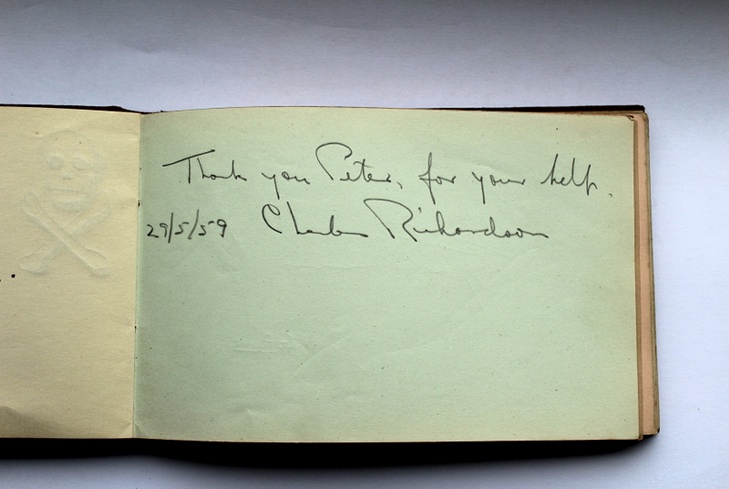 Thank you Peter, for your help.
29/5/59 Charles Richardson